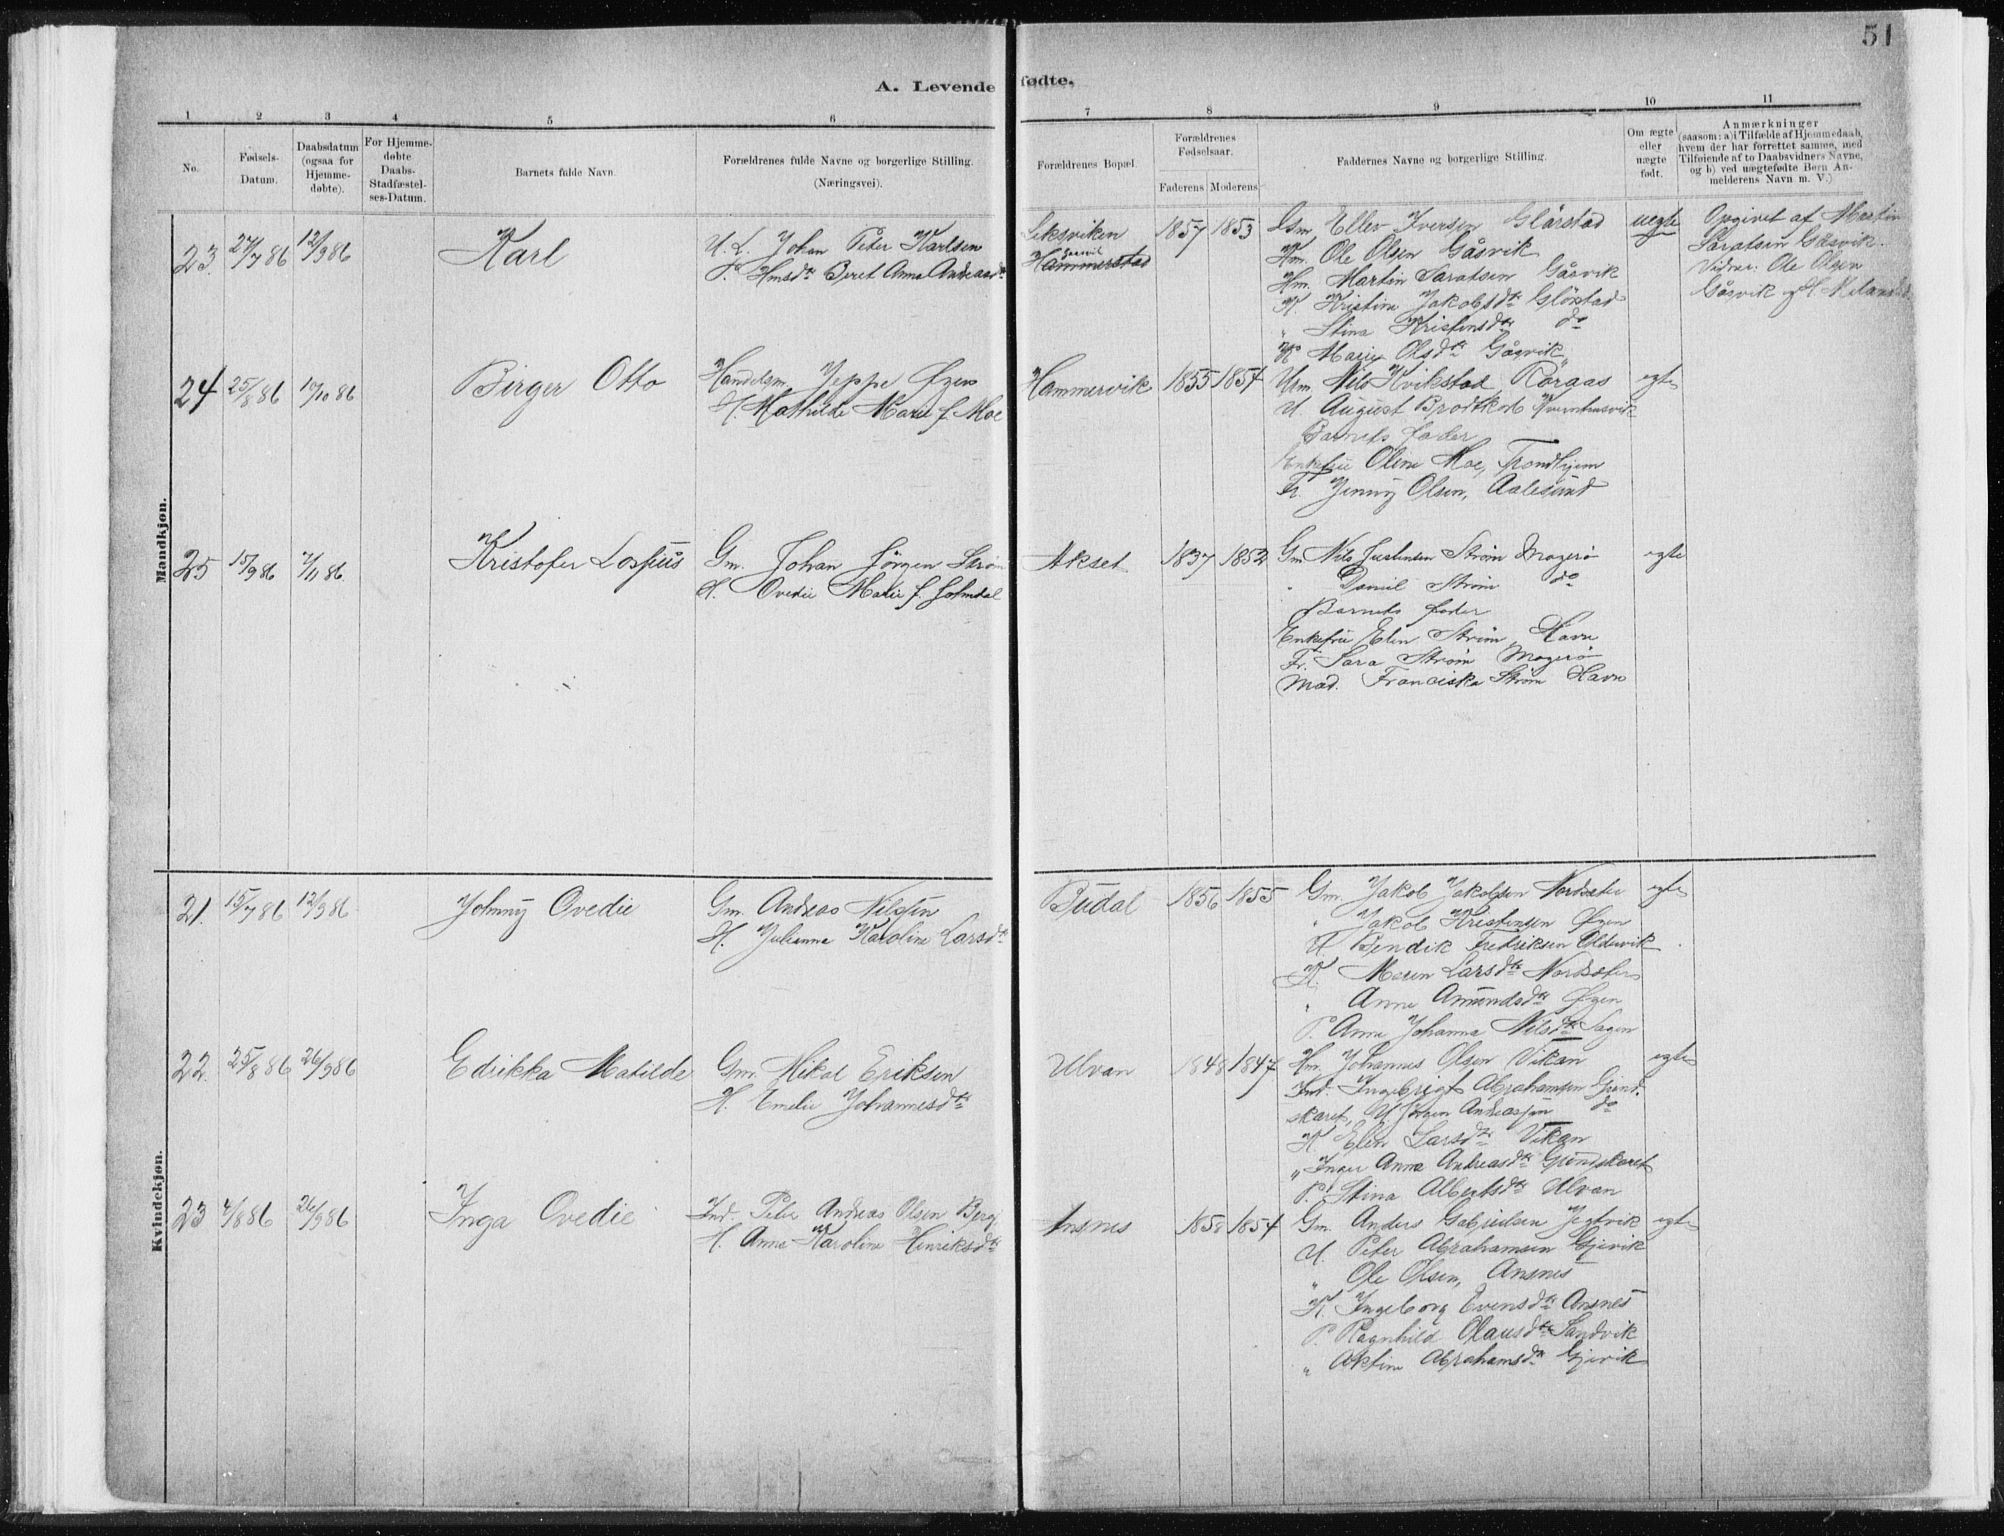 51
A. Levendefødte.
1 2 3 4 5 6 7 8 9 10 11
No.
Fødsels-
Datum.
Daabsdatum
(ogsaa for
Hjemme-
døbte).
For Hjemme-
døbte
Daabs-
Stadfæstel-
ses-Datum.
Barnets fulde Navn.
Forældrenes fulde Navne og borgerlige Stilling.
(Næringsvei).
Forældrenes Bopæl.
Forældrenes
Fødselsaar.
Faderens Moderens
Faddernes Navne og borgerlige Stilling.
Om ægte
eller
uægte
født.
Anmærkninger
(saasom: a) i Tilfælde af Hjemmedaab,
hvem der har forrettet samme, med
Tilføiende af to Daabsvidners Navne,
og b) ved uægtefødte Børn An-
melderens Navn m. V.)
Mandkjøn.
23. 27/7 86 12/9 86 Karl
U. L. Johan Peter Karlsen
P. Hmsdtr Beret Anna Andreasdtr
Leksviken
Hammerstad
1857 1853
Gm Ellev Iversen Glørstad
Hm. Ole Olsen Gåsvik
Hm. Martin Saratsen Gåsvik
K. Kristine Jakobsdtr Glöstad
" Stina Kristensdtr do
K Olsdtr Gåsvik
uegte
Opgivet af Martin
Saratsen Gåsvik.
Vidner: Ole Olsen
Gåsvik og
24 25/8 86 10/10 86 Birger Otto
Handelsm. Jeppe Øzen
H. Mathilde Marie f. Moe
Hammervik 1855 1854
Nils Kvikstad Röraas
U. August Brodtkorb
Barnets fader
Enkefru Oline Moe, Trondhjem
Fr. Jenny Olsen, Aalesund
egte
25 15/9 86 7/11 86. Kristofer
Gm. Johan Jörgen Strøm
H. Ovedie Marie f. Holmdal
Akset 1837 1852
Gm Nils Justinsen Strøm Magerø
" Daniel Strøm do
Barnets fader
Enkefru Elen Strøm, Havn
Fr. Sara Strøm Magerø
Mad. Franciska Strøm Havn
egte
Kvindekjøn.
21. 15/7 86 12/9 86 Johnny Ovedie
Gm. Andreas Nilsen
H. Julianna Karoline Larsdtr
Budal 1856 1855
Gm. Jakob Jakobsen Nordsæter
" Jakob Kristensen Øzen
U Bendik Fredriksen Oldervik
K. Maren Larsdtr Nordsæter
" Anne Amundsdtr Øzen
P. Anne Johanna Nilsdtr Sagen
egte
22. 25/8 86 26/9 86 Edikka Matilde
Gm. Mikal Eriksen
H. Emelie Johannesdtr
Ulvan 1848 1847
Hm. Johannes Olsen Vikan
Ind. Ingebrigt Abrahamsen Grund-
skaret, U Jörgen Andreassen do
K Elen Larsdtr Vikan
" Inger Anna Andreasdtr Grundskaret
P. Stina Albertsdtr Ulvan
egte
23 4/8 86 26/9 86 Inga Ovedie
Ind. Peter Andreas Olsen Berg
H. Anna Karoline Henriksdtr
Ansnes 1854
Gm. Anders Gabrielsen Jegtvik
U. Peter Abrahamsen Gjevik
" Ole Olsen, Ansnes
K Ingeborg Evensdtr Ansnes
P. Ragnhild Olausdtr Sandvik
" Abrahamsdtr Gjevik
egte